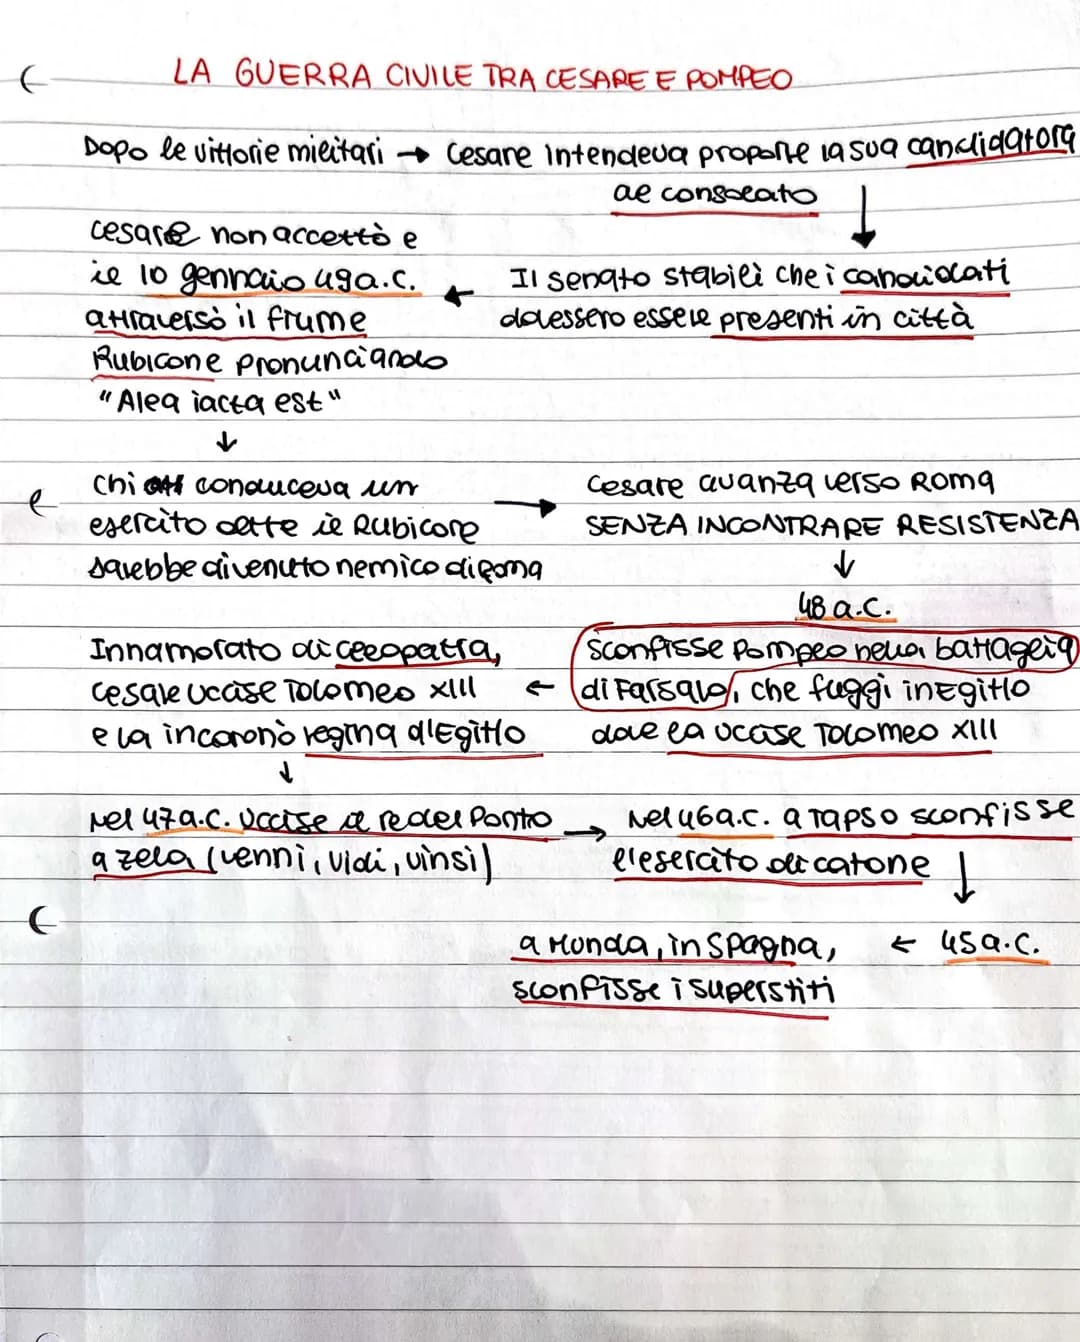 LA GUERRA CIVILE TRA CESARE E POMPEO
Dopo le vittorie militari → Cesare intendeva proporre la sua candidatora
al consolato
↓
Il senato stabilì che i candidati
dovessero essere presenti in città
←
cesare non accettò e
il 10 gennaio 49 a.C.
attraversò il fiume
Rubicone pronunciando
"Alea iacta est"
↓
Chi conduceva un
esercito oltre il Rubicone
sarebbe divenuto nemico di Roma
→
Cesare avanza verso Roma
SENZA INCONTRARE RESISTENZA
↓
48 a.C.
Sconfisse Pompeo nella battaglia
di Farsalo, che fuggì in Egitto
dove la uccise Tolomeo XIII
←
Innamorato di Cleopatra,
cesare uccise Tolomeo XIII
e la incoronò regina d'Egitto
↓
Nel 47 a.C. uccise il re del Ponto
a Zela (venni, vidi, vinsi)
→
Nel 46 a.C. a Tapso sconfisse
l'esercito di catone
↓
45 a.C.
←
a Monda, in Spagna,
sconfisse i superstiti